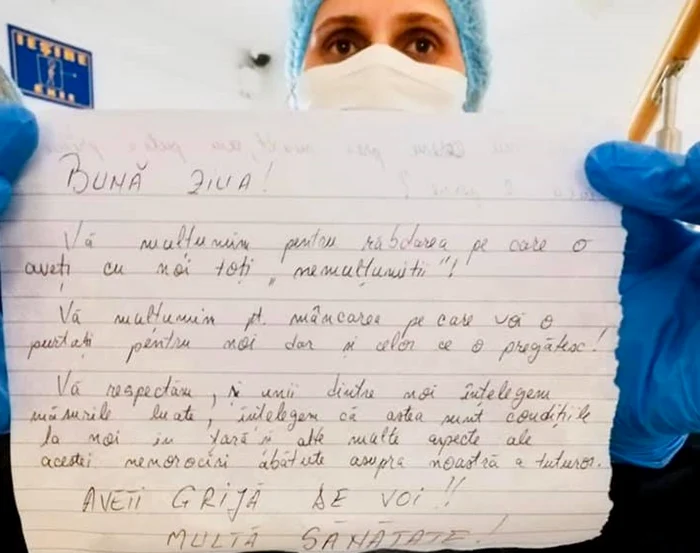 IEȘIRE
EXIT
BUNĂ ZIUA!
Vă mulțumim pentru răbdarea pe care o
aveți cu noi toți „nemulțumitii"!
Vă mulțumim pt. mâncarea pe care voi o
purtați pentru noi dar și celor ce o pregătesc!
Vă respectăm, și unii dintre noi înțelegem
măsurile luate, înțelegem că astea sunt condițiile
la noi în țară și alte multe aspecte ale
acestei nenorociri abătute asupra noastră a tuturor.
AVEȚI GRIJĂ DE VOI!!
MULTĂ SĂNĂTATE!